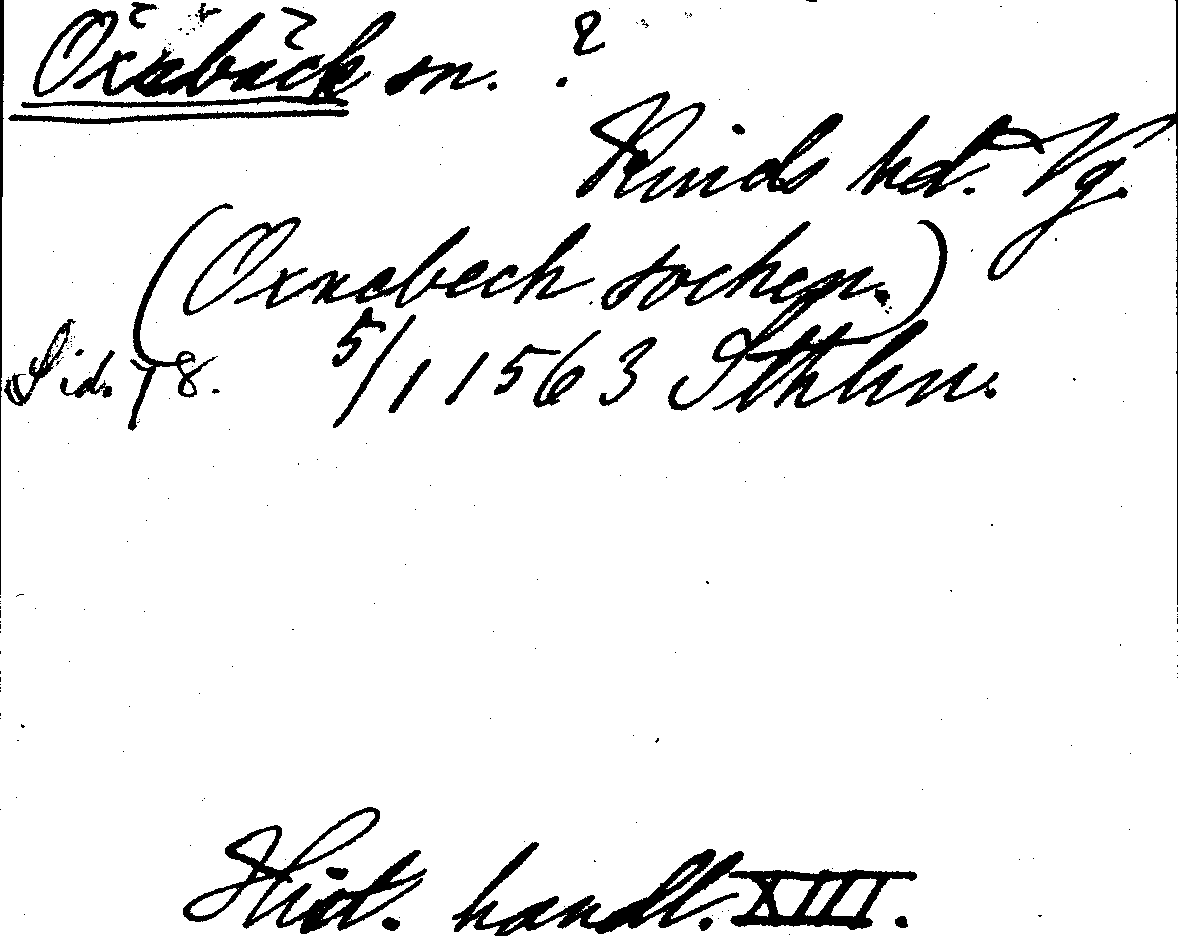 Öxnabäck sn. ?
Kinds hd. Vg.
(Oxnebech sochen.)
Sid. 78. 5/1 1563 Sthlm.
Hist. handl. XIII.